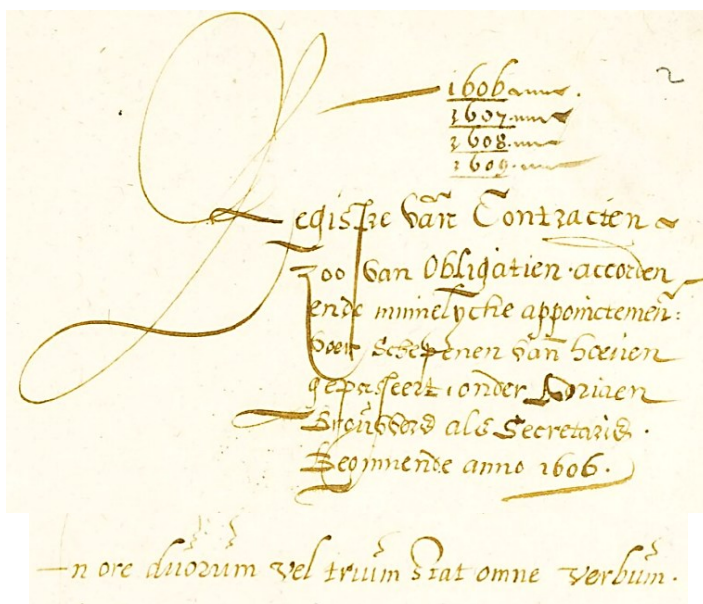 2
1606 anno.
1607. anno
1608. anno
1609. anno
Registre van Contracten
Zoo van Obligatien. accorden
ende minnelycke appoinctemen:
voer Schepenen van hoeven
gepasseert, onder Adriaen
als Secretaris.
Beginnende anno 1606.
In ore duorum vel trium stat omne verbum.